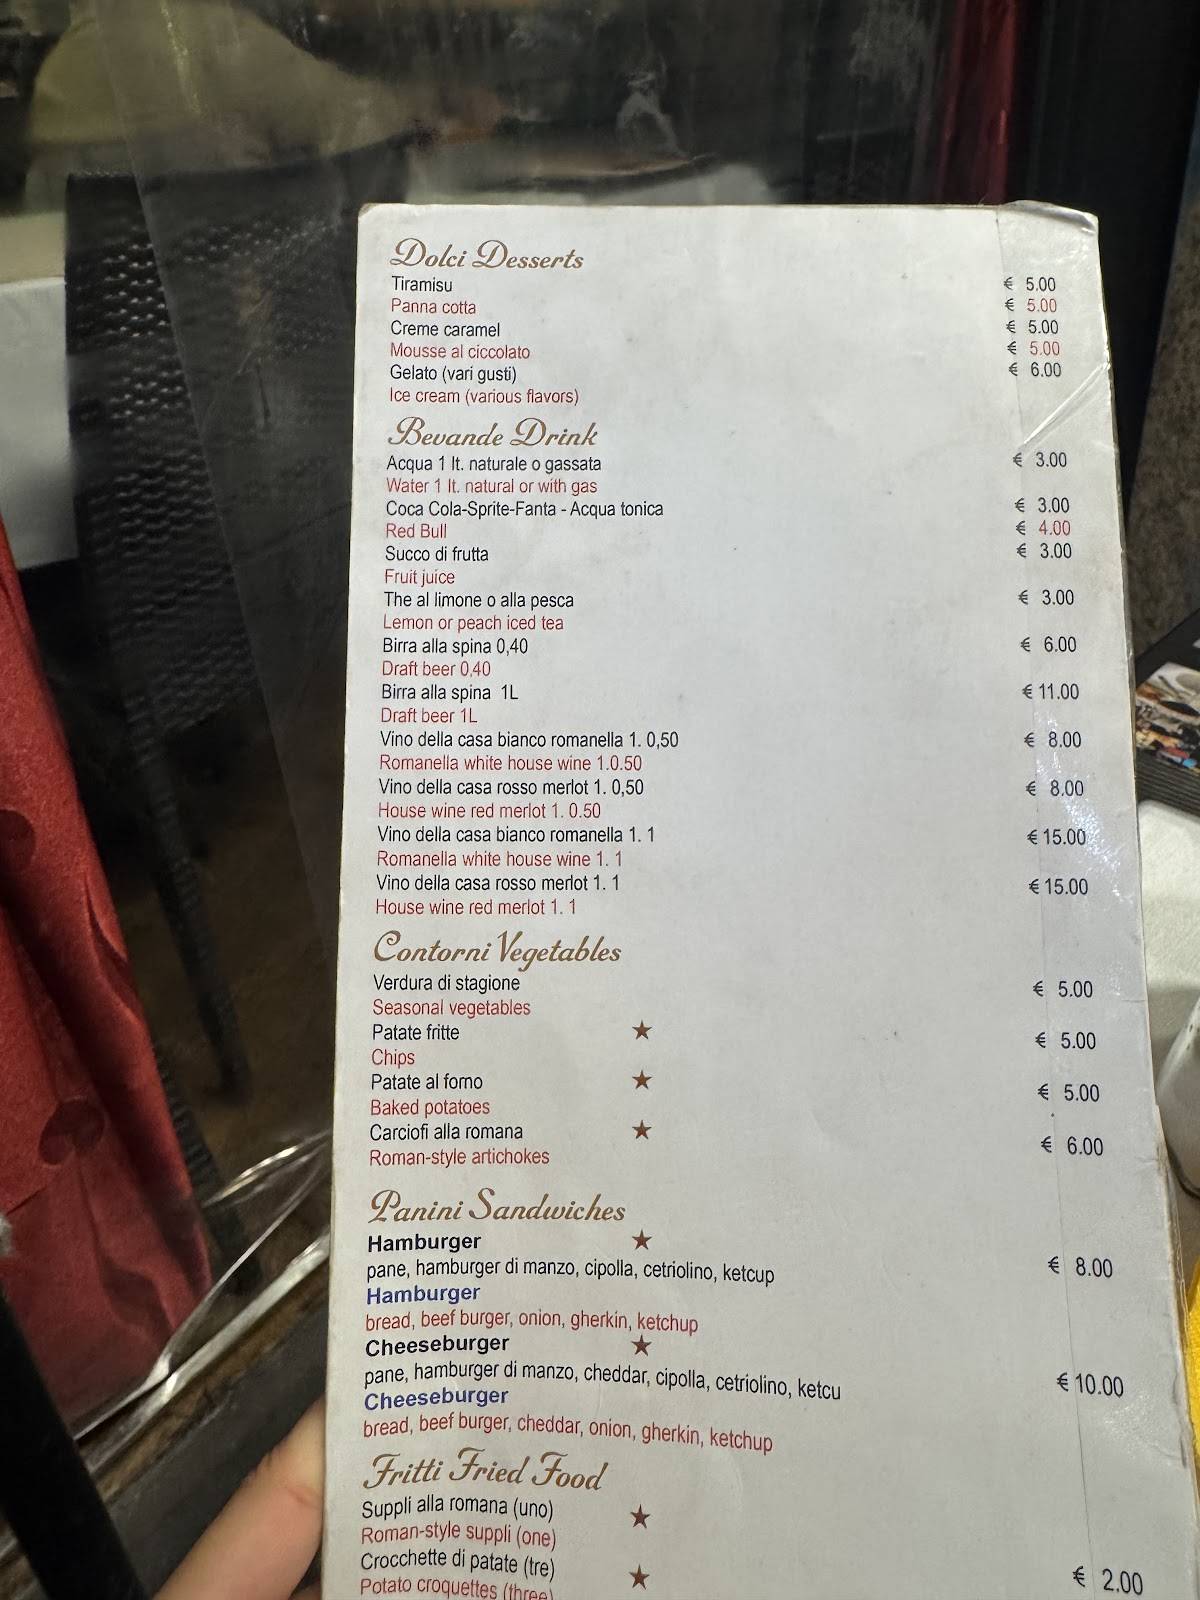 Dolci Desserts
Tiramisu € 5.00
Panna cotta € 5.00
Creme caramel € 5.00
Mousse al ciccolato € 5.00
Gelato (vari gusti) € 6.00
Ice cream (various flavors)
Bevande Drink
Acqua 1 lt. naturale o gassata € 3.00
Water 1 lt. natural or with gas
Coca Cola-Sprite-Fanta - Acqua tonica € 3.00
Red Bull € 4.00
Succo di frutta € 3.00
Fruit juice
The al limone o alla pesca € 3.00
Lemon or peach iced tea
Birra alla spina 0,40 € 6.00
Draft beer 0,40
Birra alla spina 1L € 11.00
Draft beer 1L
Vino della casa bianco romanella 1. 0,50 € 8.00
Romanella white house wine 1.0.50
Vino della casa rosso merlot 1. 0,50 € 8.00
House wine red merlot 1. 0.50
Vino della casa bianco romanella 1. 1 € 15.00
Romanella white house wine 1. 1
Vino della casa rosso merlot 1. 1 € 15.00
House wine red merlot 1. 1
Contorni Vegetables
Verdura di stagione € 5.00
Seasonal vegetables
Patate fritte ★ € 5.00
Chips
Patate al forno ★ € 5.00
Baked potatoes
Carciofi alla romana ★ € 6.00
Roman-style artichokes
Panini Sandwiches
Hamburger ★
pane, hamburger di manzo, cipolla, cetriolino, ketcup € 8.00
Hamburger
bread, beef burger, onion, gherkin, ketchup
Cheeseburger ★
pane, hamburger di manzo, cheddar, cipolla, cetriolino, ketcu € 10.00
Cheeseburger
bread, beef burger, cheddar, onion, gherkin, ketchup
Fritti Fried Food
Suppli alla romana (uno) ★
Roman-style suppli (one)
Crocchette di patate (tre) ★ € 2.00
Potato croquettes (three)